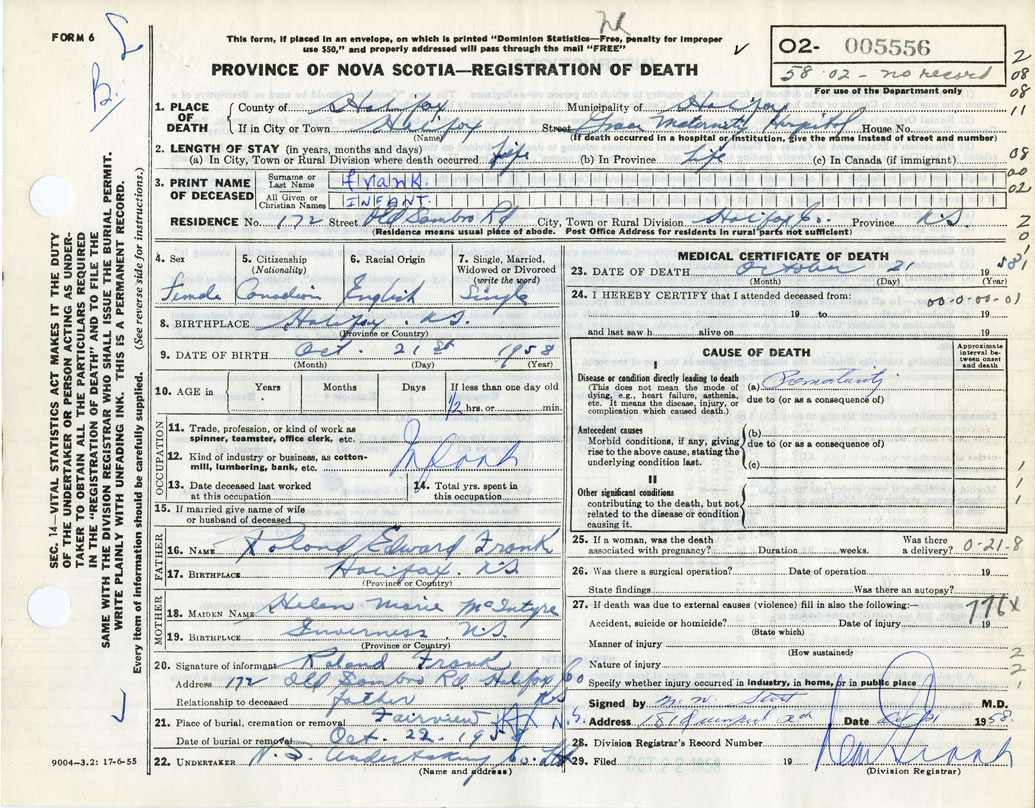 FORM 6
This form, if placed in an envelope, on which is printed "Dominion Statistics—Free, penalty for improper
use $50," and properly addressed will pass through the mail "FREE"
PROVINCE OF NOVA SCOTIA—REGISTRATION OF DEATH
O2- 005556
58·02 - no record
For use of the Department only
1. PLACE OF DEATH
County of Halifax Municipality of Halifax
If in City or Town Halifax Street Grace Maternity Hospital House No.
(Name) (If death occurred in a hospital or institution, give the name instead of street and number)
2. LENGTH OF STAY (in years, months and days)
(a) In City, Town or Rural Division where death occurred Life (b) In Province Life (c) In Canada (if immigrant)
3. PRINT NAME OF DECEASED
Surname or Last Name frank.
All Given or Christian Names INFANT.
RESIDENCE No. 172 Street Old Sambro Rd City, Town or Rural Division Halifax Co. Province N.S.
(Residence means usual place of abode. Post Office Address for residents in rural parts not sufficient)
4. Sex
Female
5. Citizenship
(Nationality)
Canadian
6. Racial Origin
English
7. Single, Married,
Widowed or Divorced
(write the word)
Single
8. BIRTHPLACE Halifax. N.S.
(Province or Country)
9. DATE OF BIRTH Oct. 21st 1958
(Month) (Day) (Year)
10. AGE in
Years Months Days If less than one day old
1/2 hrs. or min.
OCCUPATION
11. Trade, profession, or kind of work as
spinner, teamster, office clerk, etc.
12. Kind of industry or business, as cotton-
mill, lumbering, bank, etc.
Infant
13. Date deceased last worked
at this occupation
14. Total yrs. spent in
this occupation
15. If married give name of wife
or husband of deceased
FATHER
16. NAME Roland Edward Frank
17. BIRTHPLACE Halifax. N.S
(Province or Country)
MOTHER
18. MAIDEN NAME Helen Marie McIntyre
19. BIRTHPLACE Inverness N.S.
(Province or Country)
20. Signature of informant Roland Frank
Address 172 Old Sambro Rd. Halifax Co
Relationship to deceased Father N.S
21. Place of burial, cremation or removal Fairview N.S.
Date of burial or removal Oct. 22 - 1958
22. UNDERTAKER N.S. Undertaking Co. Ltd
(Name and address)
9004-3.2: 17-6-55
MEDICAL CERTIFICATE OF DEATH
23. DATE OF DEATH October 21 1958
(Month) (Day) (Year)
24. I HEREBY CERTIFY that I attended deceased from: 00-0-00-01
19 to 19
and last saw h alive on 19
CAUSE OF DEATH
Approximate
interval be-
tween onset
and death
I
Disease or condition directly leading to death
(This does not mean the mode of
dying, e.g., heart failure, asthenia,
etc. It means the disease, injury, or
complication which caused death.)
(a) Prematurity
due to (or as a consequence of)
Antecedent causes
Morbid conditions, if any, giving
rise to the above cause, stating the
underlying condition last.
(b)
due to (or as a consequence of)
(c)
II
Other significant conditions
contributing to the death, but not
related to the disease or condition
causing it.
25. If a woman, was the death
associated with pregnancy? Duration weeks. Was there
a delivery? 0-21-8
26. Was there a surgical operation? Date of operation 19
State findings Was there an autopsy?
27. If death was due to external causes (violence) fill in also the following:—
776X
Accident, suicide or homicide? Date of injury 19
(State which)
Manner of injury
(How sustained)
Nature of injury
Specify whether injury occurred in industry, in home, or in public place
Signed by M.D.
Address Date 1958.
28. Division Registrar's Record Number
29. Filed OCT 22 1958 19
(Division Registrar)
SEC. 14—VITAL STATISTICS ACT MAKES IT THE DUTY
OF THE UNDERTAKER OR PERSON ACTING AS UNDER-
TAKER TO OBTAIN ALL THE PARTICULARS REQUIRED
IN THE "REGISTRATION OF DEATH" AND TO FILE THE
SAME WITH THE DIVISION REGISTRAR WHO SHALL ISSUE THE BURIAL PERMIT.
WRITE PLAINLY WITH UNFADING INK. THIS IS A PERMANENT RECORD.
Every item of information should be carefully supplied. (See reverse side for instructions.)
2
08
08
11
08
00
02
2
0
1
1
1
2
2
1